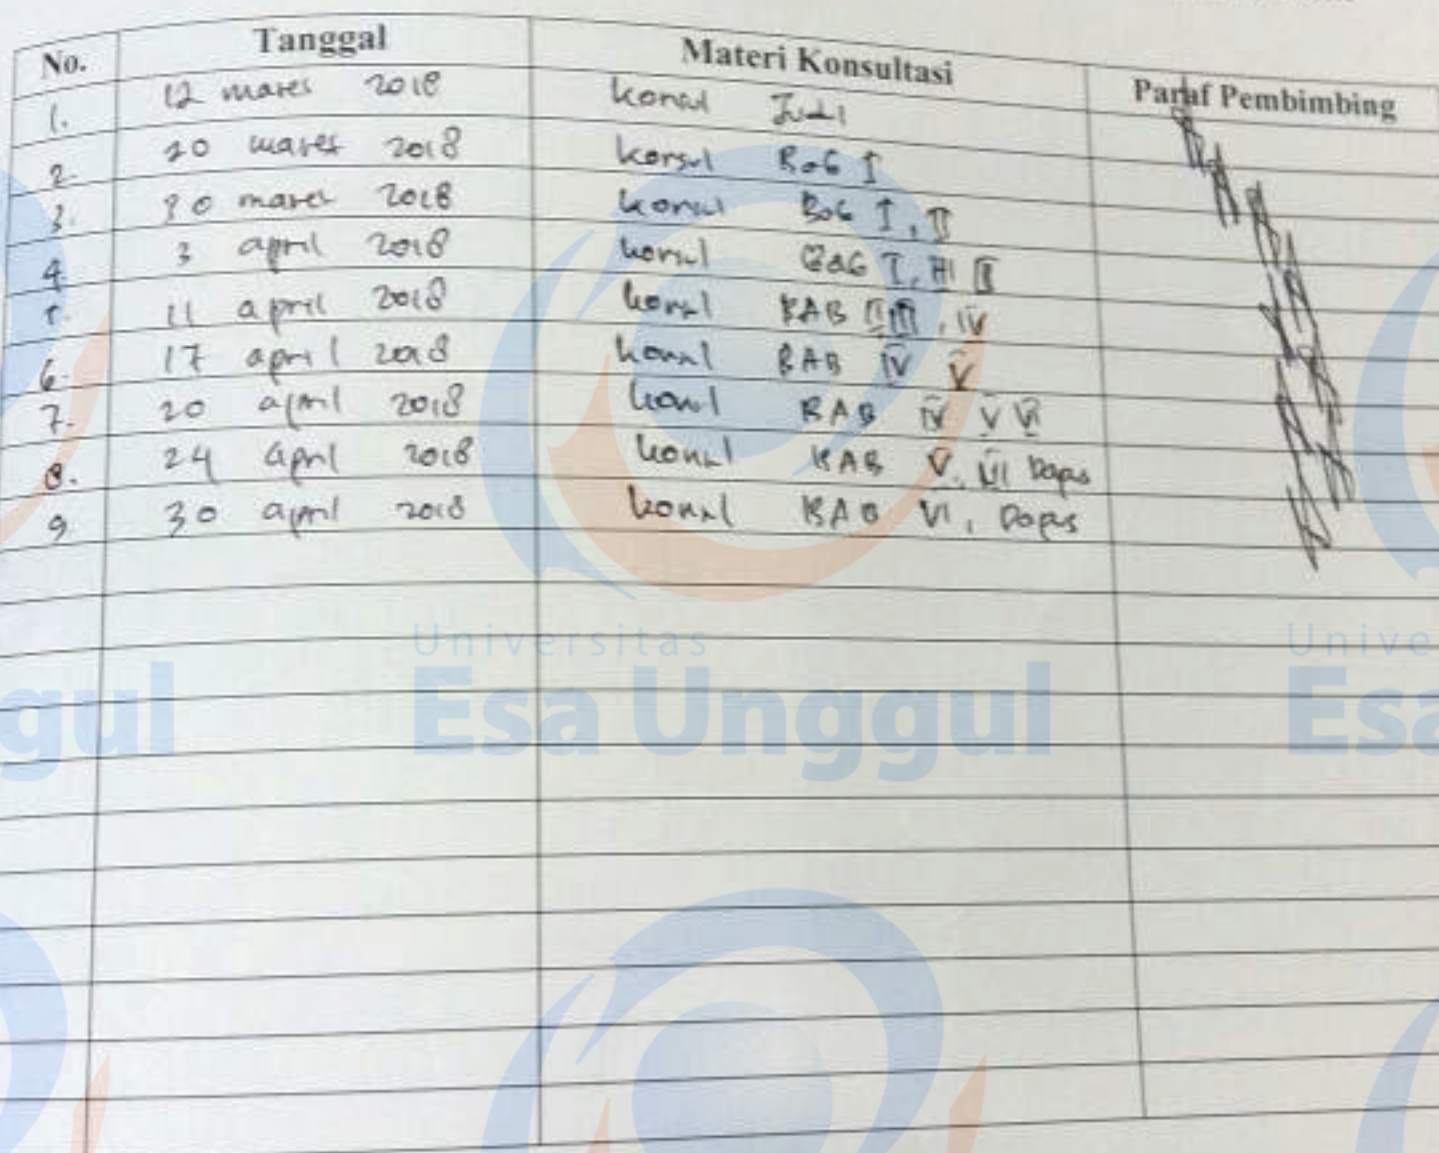 No. Tanggal Materi Konsultasi Paraf Pembimbing
1. 12 maret 2018 konsul Judl
2. 20 maret 2018 konsul Bab I
3. 30 maret 2018 konsul Bab I, II
4. 3 april 2018 konsul Bab I, III II
5. 11 april 2018 konsul BAB II III, IV
6. 17 april 2018 konsul BAB IV V
7. 20 april 2018 konsul BAB IV V VI
8. 24 april 2018 konsul BAB V, VI Dapus
9 30 april 2018 konsul BAB VI, Dapus
Universitas Unive
ggul Esa Unggul Esa